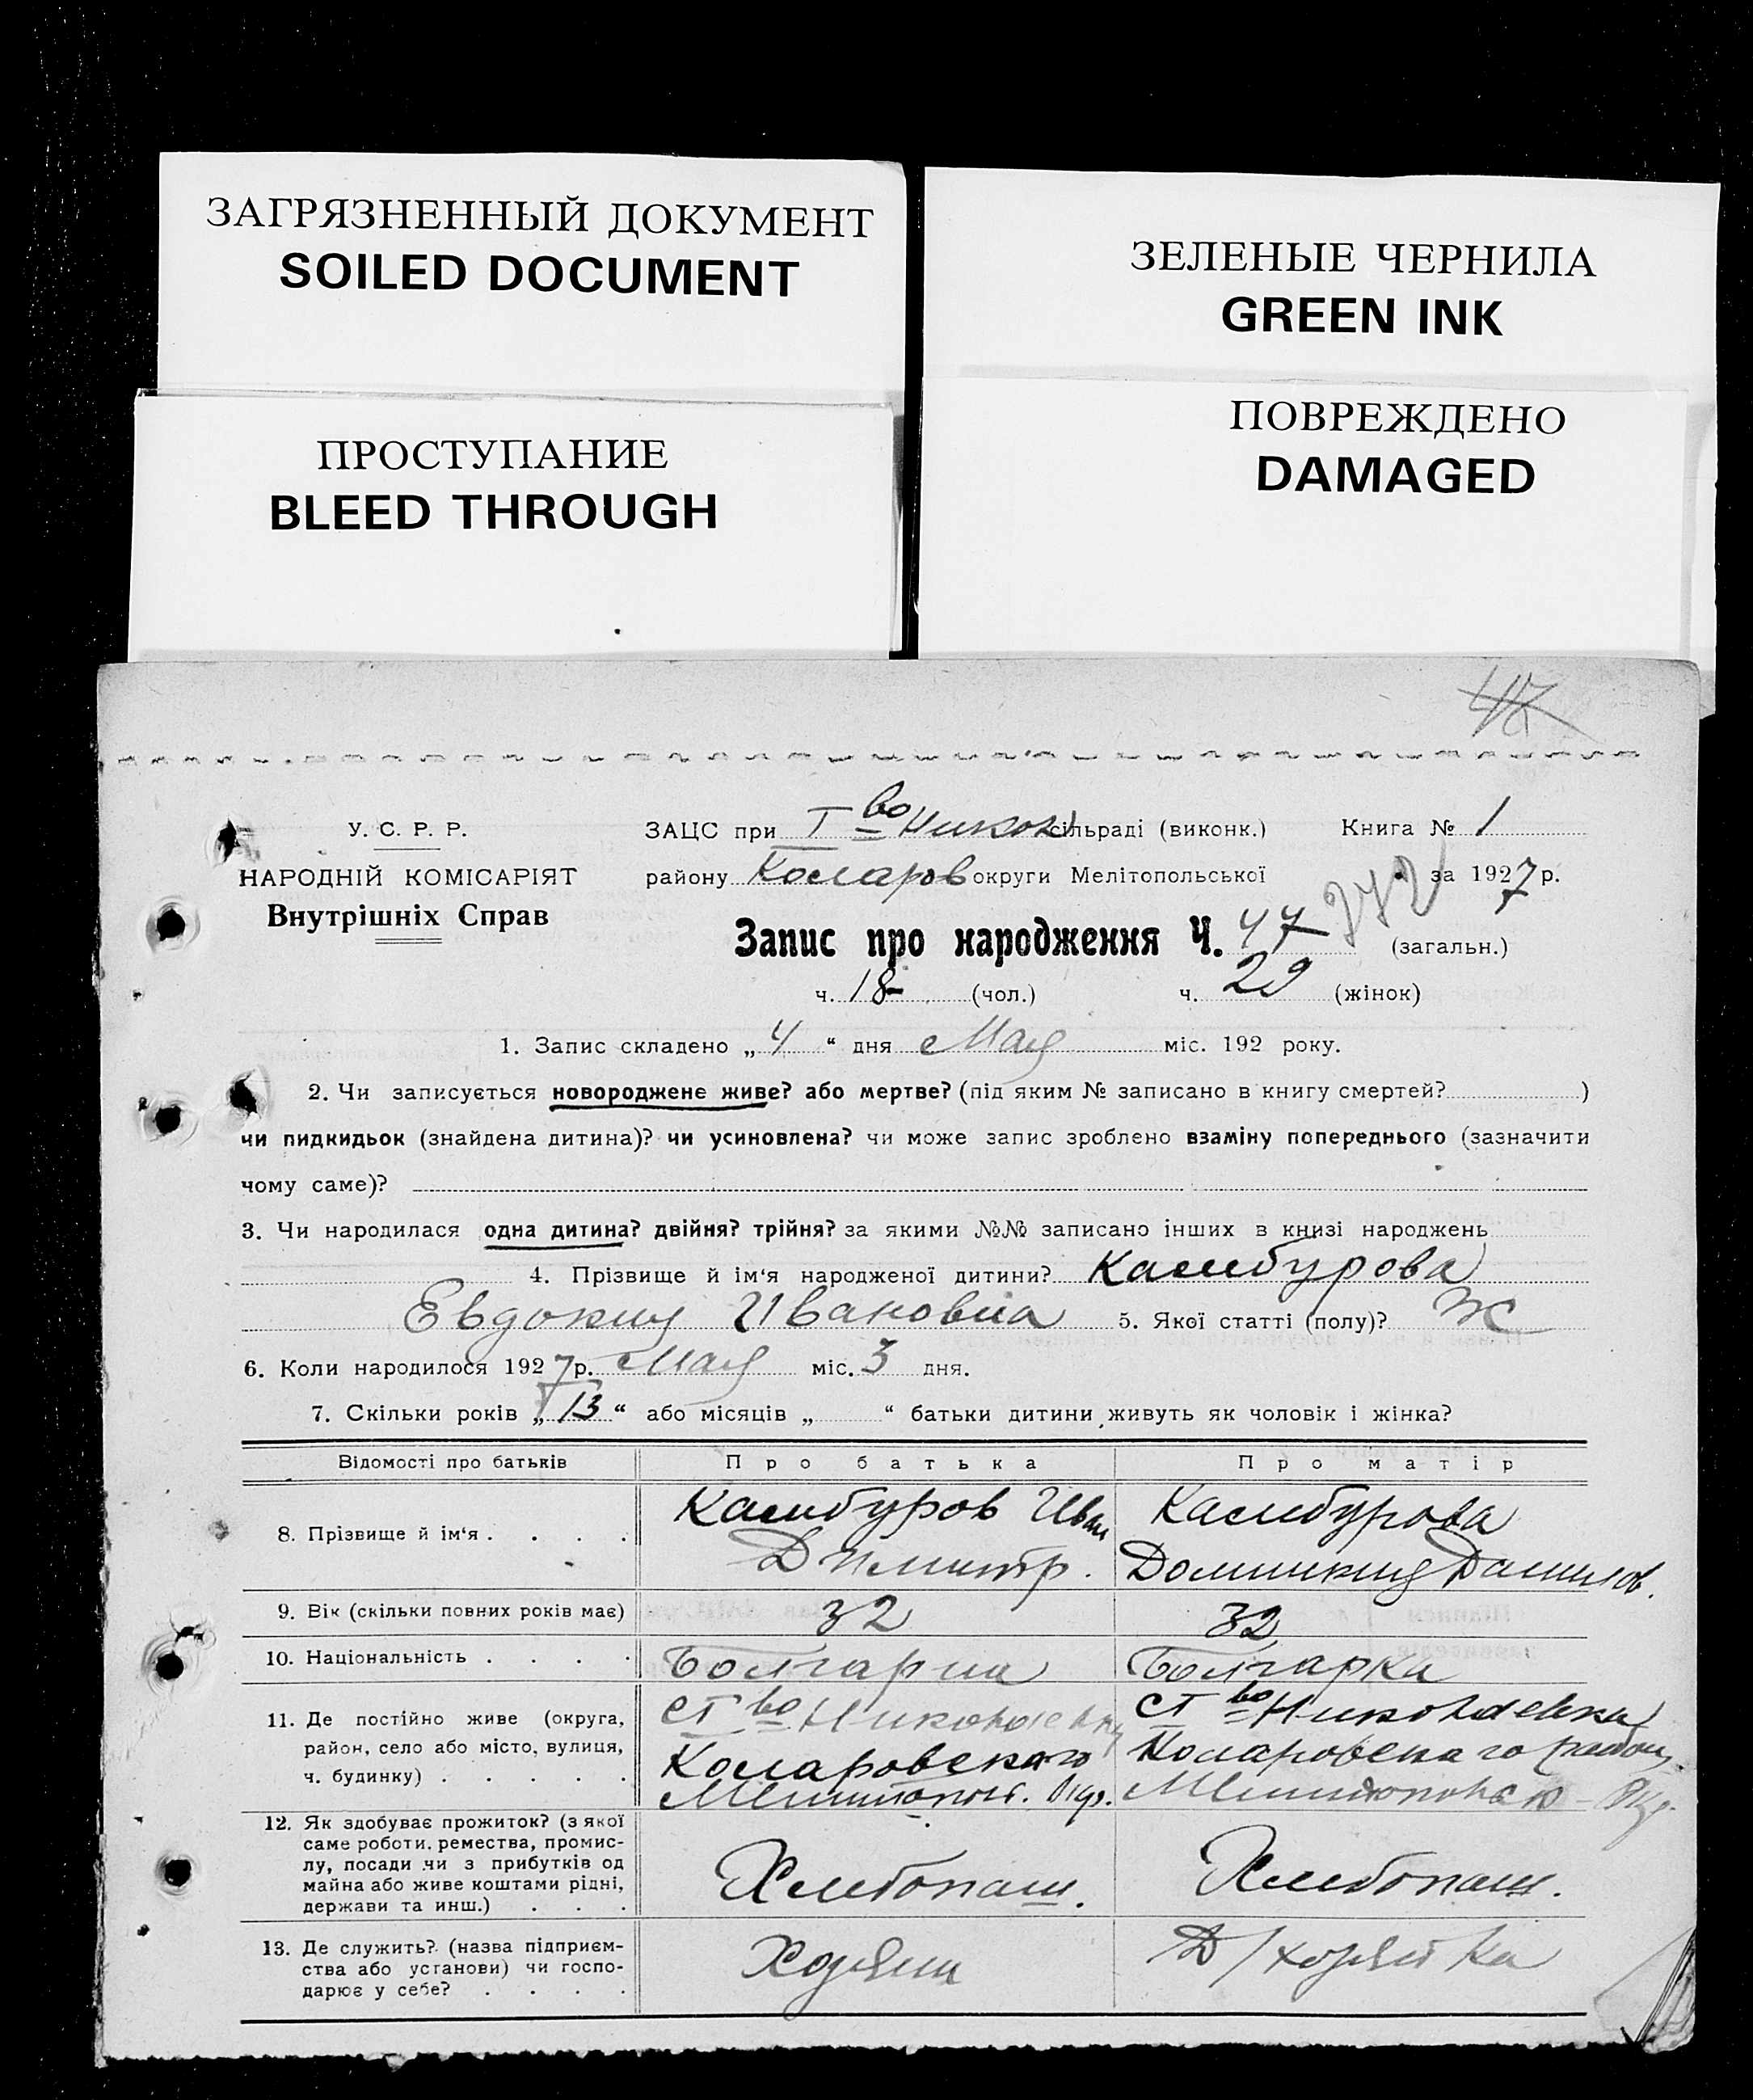 ЗАГРЯЗНЕННЫЙ ДОКУМЕНТ
SOILED DOCUMENT
ЗЕЛЕНЫЕ ЧЕРНИЛА
GREEN INK
ПРОСТУПАНИЕ
BLEED THROUGH
ПОВРЕЖДЕНО
DAMAGED
47
У. С. Р. Р.
НАРОДНІЙ КОМІСАРІЯТ
Внутрішніх Справ
ЗАЦС при Т во Никол сільраді (виконк.) Книга № 1
району Коларов округи Мелітопольської за 1927 р.
Запис про народження Ч. 47 272 (загальн.)
ч. 18 (чол.) ч. 29 (жінок)
1. Запис складено „ 4 “ дня Мая міс. 192 року.
2. Чи записується новороджене живе? або мертве? (під яким № записано в книгу смертей? )
чи пидкидьок (знайдена дитина)? чи усиновлена? чи може запис зроблено взаміну попереднього (зазначити
чому саме)?
3. Чи народилася одна дитина? двійня? трійня? за якими №№ записано інших в книзі народжень
4. Прізвище й ім‘я народженої дитини? Камбурова
Евдокия Ивановна 5. Якої статті (полу)? Ж
6. Коли народилося 1927 р. Мая міс. 3 дня.
7. Скільки років „ 13 “ або місяців „ “ батьки дитини живуть як чоловік і жінка?
Відомості про батьків Про батька Про матір
8. Прізвище й ім‘я . . . .
Камбуров Иван
Димитр.
Камбурова
Доминикия Данилов.
9. Вік (скільки повних років має) 32 32
10. Національність . . . . Болгарин Болгарка
11. Де постійно живе (округа,
район, село або місто, вулиця,
ч. будинку) . . . . .
Ст во Николаевка
Коларовского
Мелитопол. Окр.
Ст во Николаевка
Коларовскаго район.
Мелитопольск - Окр.
12. Як здобуває прожиток? (з якої
саме роботи, ремества, промис-
лу, посади чи з прибутків од
майна або живе коштами рідні,
держави та инш.) . . .
Хлебопаш.
Хлебопаш.
13. Де служить? (назва підприєм-
ства або установи) чи госпо-
дарює у себе? . . . .
Хозяин
Д/хозяйка